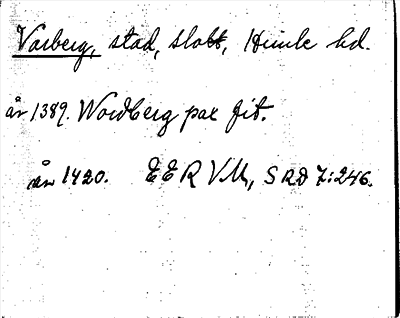 Varberg, stad, slott, Himle hd.
år 1389. Wordberg pax fit.
år 1420. EER VM, SRD 7:246.